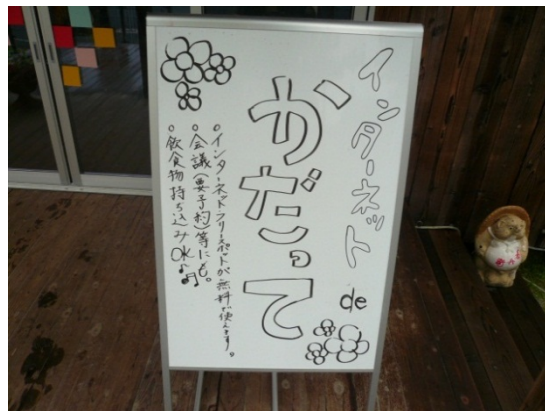 インターネット
de
かだって
。インターネットフリースポットが無料で使えます。
。会議(要予約)等にも。
。飲食物持ち込みOK♪♬